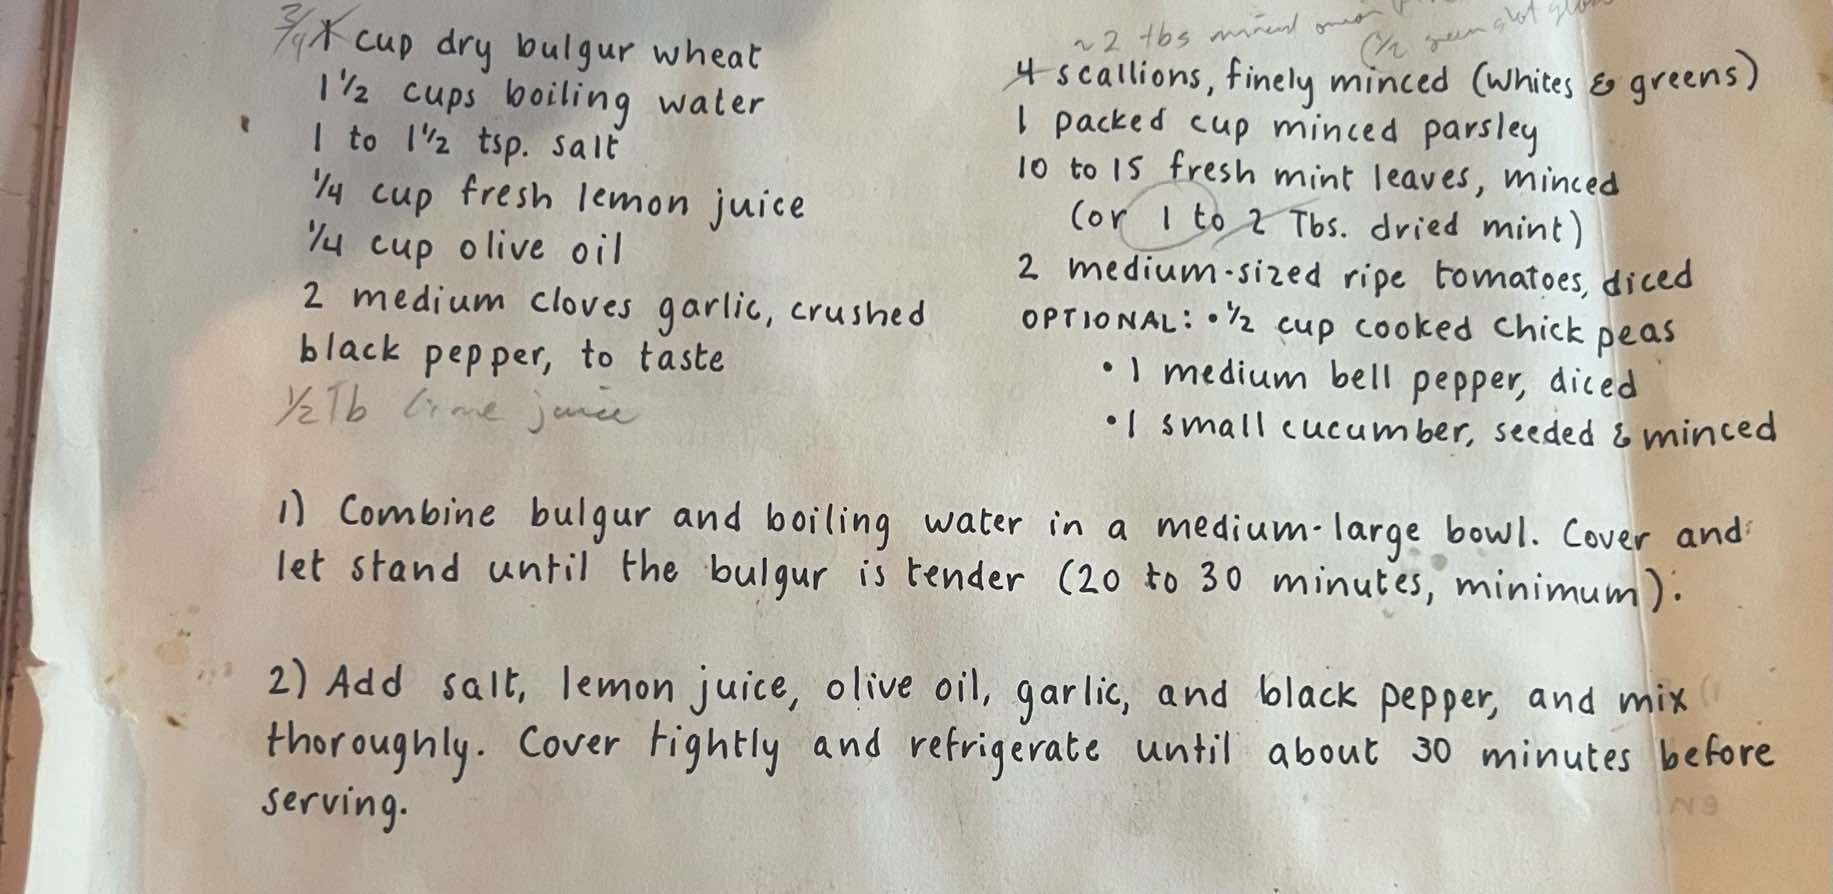 3/4 1 cup dry bulgur wheat
1 1/2 cups boiling water
1 to 1 1/2 tsp. salt
1/4 cup fresh lemon juice
1/4 cup olive oil
2 medium cloves garlic, crushed
black pepper, to taste
1/2 Tb lime juice
~2 tbs minced onion
(1/2 green
4 scallions, finely minced (whites & greens)
1 packed cup minced parsley
10 to 15 fresh mint leaves, minced
(or 1 to 2 Tbs. dried mint)
2 medium-sized ripe tomatoes, diced
OPTIONAL: • 1/2 cup cooked chick peas
• 1 medium bell pepper, diced
• 1 small cucumber, seeded & minced
1) Combine bulgur and boiling water in a medium-large bowl. Cover and
let stand until the bulgur is tender (20 to 30 minutes, minimum).
2) Add salt, lemon juice, olive oil, garlic, and black pepper, and mix
thoroughly. Cover tightly and refrigerate until about 30 minutes before
serving.